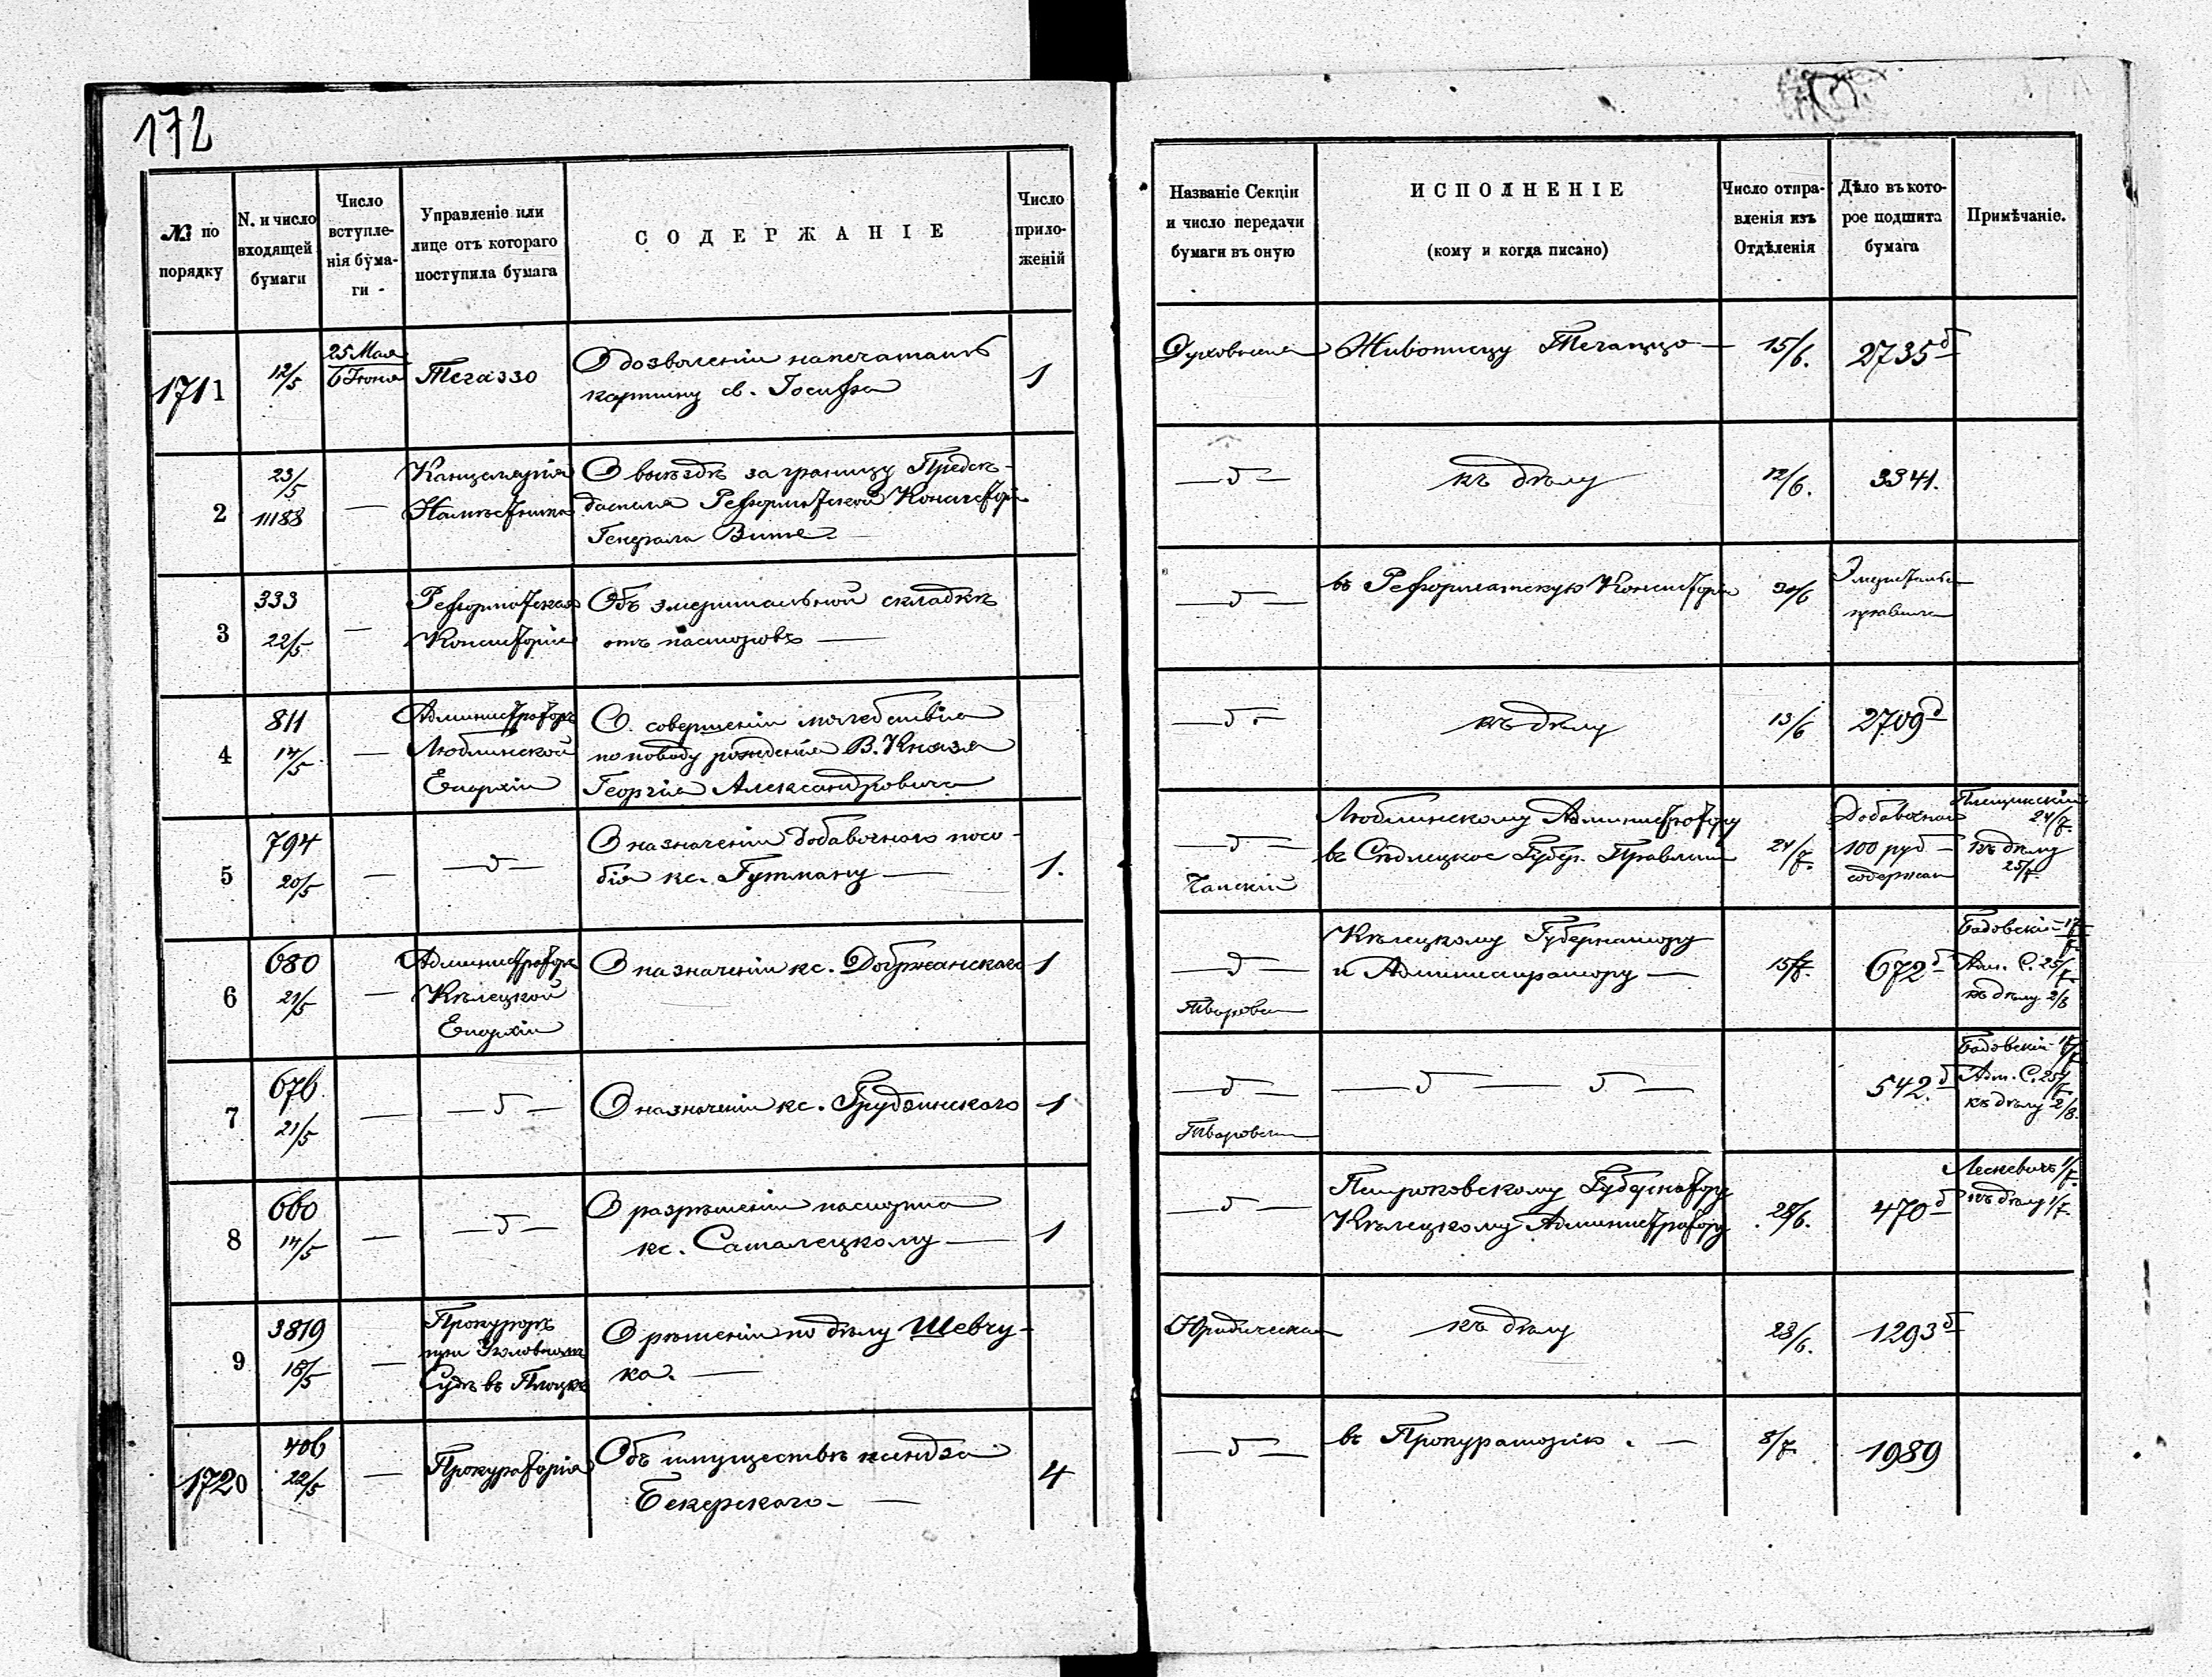 172
№ по порядку
N. и число входящей бумаги
Число вступле-нія бума-ги
Управленіе или лице отъ котораго поступила бумага
СОДЕРЖАНІЕ
Число прило-женій
Названіе Секціи и число передачи бумаги въ оную
ИСПОЛНЕНІЕ
(кому и когда писано)
Число отпра-вленія изъ Отдѣленія
Дѣло въ кото-рое подшита бумага
Примѣчаніе.
1711
12/5
25 Мая
6 Іюня
Тегаззо
О дозволеніи напечатать
картину св. Іосифа
1
Духовная
Живописцу Тегаццо —
15/6.
2735 д
2
23/5
11188
—
Канцелярія
Намѣстника
О выѣздѣ за границу Предсѣ-
дателя Реформатской Консисторіи
Генерала Витте —
— д —
къ дѣлу
12/6.
3341.
3
333
22/5
—
Реформатская
Консисторія
Объ эмеритальной складкѣ
отъ пасторовъ —
— д —
въ Реформатскую Консисторію
30/6
4
811
14/5
—
Администраторъ
Люблинской
Епархіи
О совершеніи молебствія
по поводу рожденія В. Князя
Георгія Александровича
— д —
къ дѣлу
13/6
2709 д
5
794
20/5
—
— д —
О назначеніи добавочнаго посо-
бія кс. Гутману —
1.
— д —
Люблинскому Администратору
въ Сѣдлецкое Губер. Правленіе
24/7.
Добавочная
100 руб —
содержан
24/7.
къ дѣлу
25/7.
6
680
21/5
—
Администраторъ
Кѣлецкой
Епархіи
О назначеніи кс. Добржанскаго
1
— д —
Кѣлецкому Губернатору
и Администратору —
15/7.
672 д
Бадовскій 17/7
Адм. С. 25/7
къ дѣлу 2/8
7
676
21/5
—
— д —
О назначеніи кс. Грудзинскаго
1
— д —
— д — д —
542. д
Бадовскій 17/7
Адм. С. 25/7
къ дѣлу 2/8.
8
660
14/5
—
— д —
О разрѣшеніи паспорта
кс. Саталецкому —
1
— д —
Петроковскому Губернатору
Кѣлецкому Администратору
28/6.
470 д
Лескевичъ 1/7.
къ дѣлу 1/7.
9
3819
18/5
—
Прокуроръ
при Уголовномъ
Судѣ въ Плоцкѣ
О рѣшеніи по дѣлу Шевчу-
ка. —
Юридическая
къ дѣлу
23/6.
1293 д
1720
406
22/5
—
Прокураторія
Объ имуществѣ ксендза
Бекерскаго — —
4
— д —
въ Прокураторію. —
8/7
1989